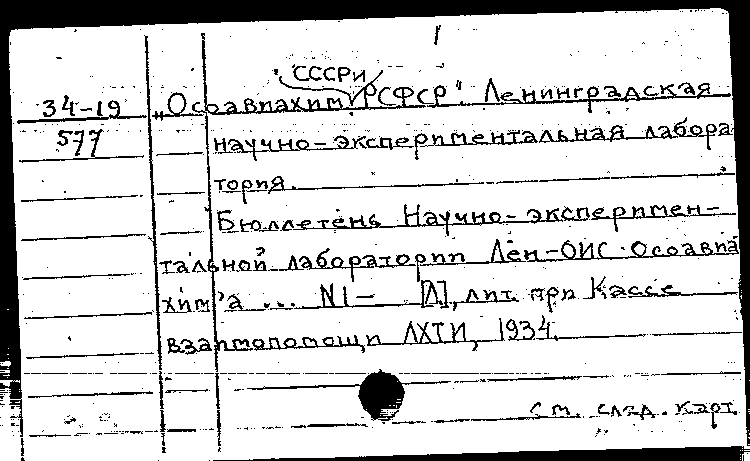 СССР и
34-19 „Осоавиахим РСФСР“. Ленинградская
577 научно-экспериментальная лабора
тория.
Бюллетень Научно-эксперимен-
тальной лаборатории Лен-ОИС Осоавиа
хим'а ... N1- [Л], лит. при Кассе
взаимопомощи ЛХТИ, 1934.
см. след. карт.